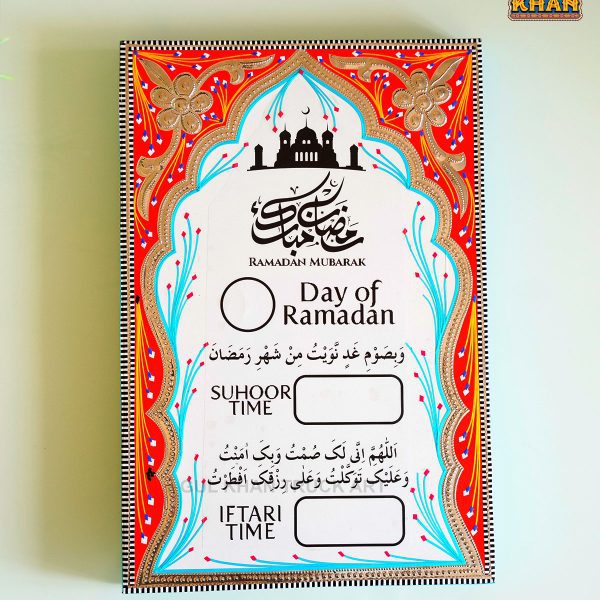 KHAN
رمضان مبارك
RAMADAN MUBARAK
Day of
Ramadan
وَبِصَوْمِ غَدٍ نَّوَيْتُ مِنْ شَهْرِ رَمَضَانَ
SUHOOR
TIME
اَللّٰهُمَّ اِنِّی لَکَ صُمْتُ وَبِکَ اٰمَنْتُ
وَعَلَيْکَ تَوَکَّلْتُ وَعَلٰی رِزْقِکَ اَفْطَرْتُ
GUL KHAN TRUCK ART
IFTARI
TIME